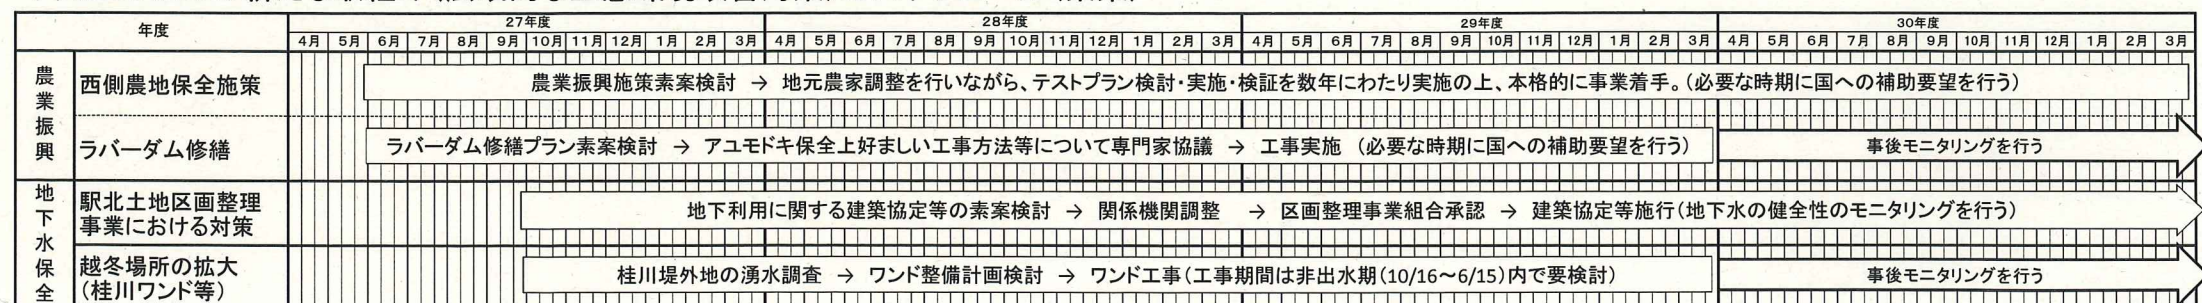 年度
27年度 28年度 29年度 30年度
4月 5月 6月 7月 8月 9月 10月 11月 12月 1月 2月 3月 4月 5月 6月 7月 8月 9月 10月 11月 12月 1月 2月 3月 4月 5月 6月 7月 8月 9月 10月 11月 12月 1月 2月 3月 4月 5月 6月 7月 8月 9月 10月 11月 12月 1月 2月 3月
農業振興
西側農地保全施策
農業振興施策素案検討 → 地元農家調整を行いながら、テストプラン検討・実施・検証を数年にわたり実施の上、本格的に事業着手。(必要な時期に国への補助要望を行う)
ラバーダム修繕
ラバーダム修繕プラン素案検討 → アユモドキ保全上好ましい工事方法等について専門家協議 → 工事実施 (必要な時期に国への補助要望を行う)
事後モニタリングを行う
地下水保全
駅北土地区画整理
事業における対策
地下利用に関する建築協定等の素案検討 → 関係機関調整 → 区画整理事業組合承認 → 建築協定等施行(地下水の健全性のモニタリングを行う)
越冬場所の拡大
(桂川ワンド等)
桂川堤外地の湧水調査 → ワンド整備計画検討 → ワンド工事(工事期間は非出水期(10/16～6/15)内で要検討)
事後モニタリングを行う